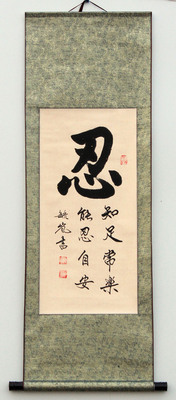 忍
知足常樂
能忍自安